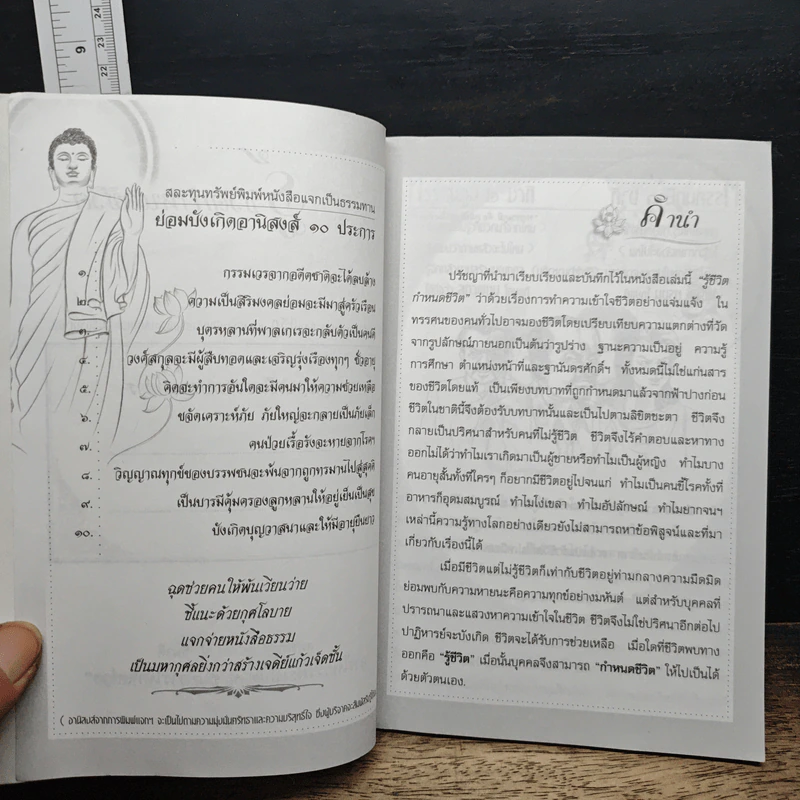 9
24
23
22
สละทุนทรัพย์พิมพ์หนังสือแจกเป็นธรรมทาน
ย่อมบังเกิดอานิสงส์ ๑๐ ประการ
๑. กรรมเวรจากอดีตชาติจะได้ลบล้าง
๒. ความเป็นสิริมงคลย่อมจะมีมาสู่ครัวเรือน
๓. บุตรหลานที่พาลเกเรจะกลับตัวเป็นคนดี
๔. วงศ์สกุลจะมีผู้สืบทอดและเจริญรุ่งเรืองทุกๆ ชั่วอายุ
๕. คิดจะทำการอันใดจะมีคนมาให้ความช่วยเหลือ
๖. ขจัดเคราะห์ภัย ภัยใหญ่จะกลายเป็นภัยเล็ก
๗. คนป่วยเรื้อรังจะหายจากโรคา
๘. วิญญาณทุกข์ของบรรพชนจะพ้นจากถูกทรมานไปสู่สุคติ
๙. เป็นบารมีคุ้มครองลูกหลานให้อยู่เย็นเป็นสุข
๑๐. บังเกิดบุญวาสนาและให้มีอายุยืนยาว
ฉุดช่วยคนให้พ้นเวียนว่าย
ชี้แนะด้วยกุศโลบาย
แจกจ่ายหนังสือธรรม
เป็นมหากุศลยิ่งกว่าสร้างเจดีย์แก้วเจ็ดชั้น
( อานิสงส์จากการพิมพ์แจกฯ จะเป็นไปตามความมุ่งมั่นศรัทธาและความบริสุทธิ์ใจ ซึ่งผู้บริจาคจะสัมผัสรู้ได้เอง
คำนำ
ปรัชญาที่นำมาเรียบเรียงและบันทึกไว้ในหนังสือเล่มนี้ "รู้ชีวิต
กำหนดชีวิต" ว่าด้วยเรื่องการทำความเข้าใจชีวิตอย่างแจ่มแจ้ง ใน
ทรรศนของคนทั่วไปอาจมองชีวิตโดยเปรียบเทียบความแตกต่างที่วัด
จากรูปลักษณ์ภายนอกเป็นต้นว่ารูปร่าง ฐานะความเป็นอยู่ ความรู้
การศึกษา ตำแหน่งหน้าที่และฐานันดรศักดิ์ฯ ทั้งหมดนี้ไม่ใช่แก่นสาร
ของชีวิตโดยแท้ เป็นเพียงบทบาทที่ถูกกำหนดมาแล้วจากฟ้าปางก่อน
ชีวิตในชาตินี้จึงต้องรับบทบาทนั้นและเป็นไปตามลิขิตชะตา ชีวิตจึง
กลายเป็นปริศนาสำหรับคนที่ไม่รู้ชีวิต ชีวิตจึงไร้คำตอบและหาทาง
ออกไม่ได้ว่าทำไมเราเกิดมาเป็นผู้ชายหรือทำไมเป็นผู้หญิง ทำไมบาง
คนอายุสั้นทั้งที่ใครๆ ก็อยากมีชีวิตอยู่ไปจนแก่ ทำไมเป็นคนขี้โรคทั้งที่
อาหารก็อุดมสมบูรณ์ ทำไมโง่เขลา ทำไมอัปลักษณ์ ทำไมยากจนฯ
เหล่านี้ความรู้ทางโลกอย่างเดียวยังไม่สามารถหาข้อพิสูจน์และที่มา
เกี่ยวกับเรื่องนี้ได้
เมื่อมีชีวิตแต่ไม่รู้ชีวิตก็เท่ากับชีวิตอยู่ท่ามกลางความมืดมิด
ย่อมพบกับความหายนะคือความทุกข์อย่างมหันต์ แต่สำหรับบุคคลที่
ปรารถนาและแสวงหาความเข้าใจในชีวิต ชีวิตจึงไม่ใช่ปริศนาอีกต่อไป
ปาฏิหารย์จะบังเกิด ชีวิตจะได้รับการช่วยเหลือ เมื่อใดที่ชีวิตพบทาง
ออกคือ "รู้ชีวิต" เมื่อนั้นบุคคลจึงสามารถ "กำหนดชีวิต" ให้ไปเป็นได้
ด้วยตัวตนเอง.